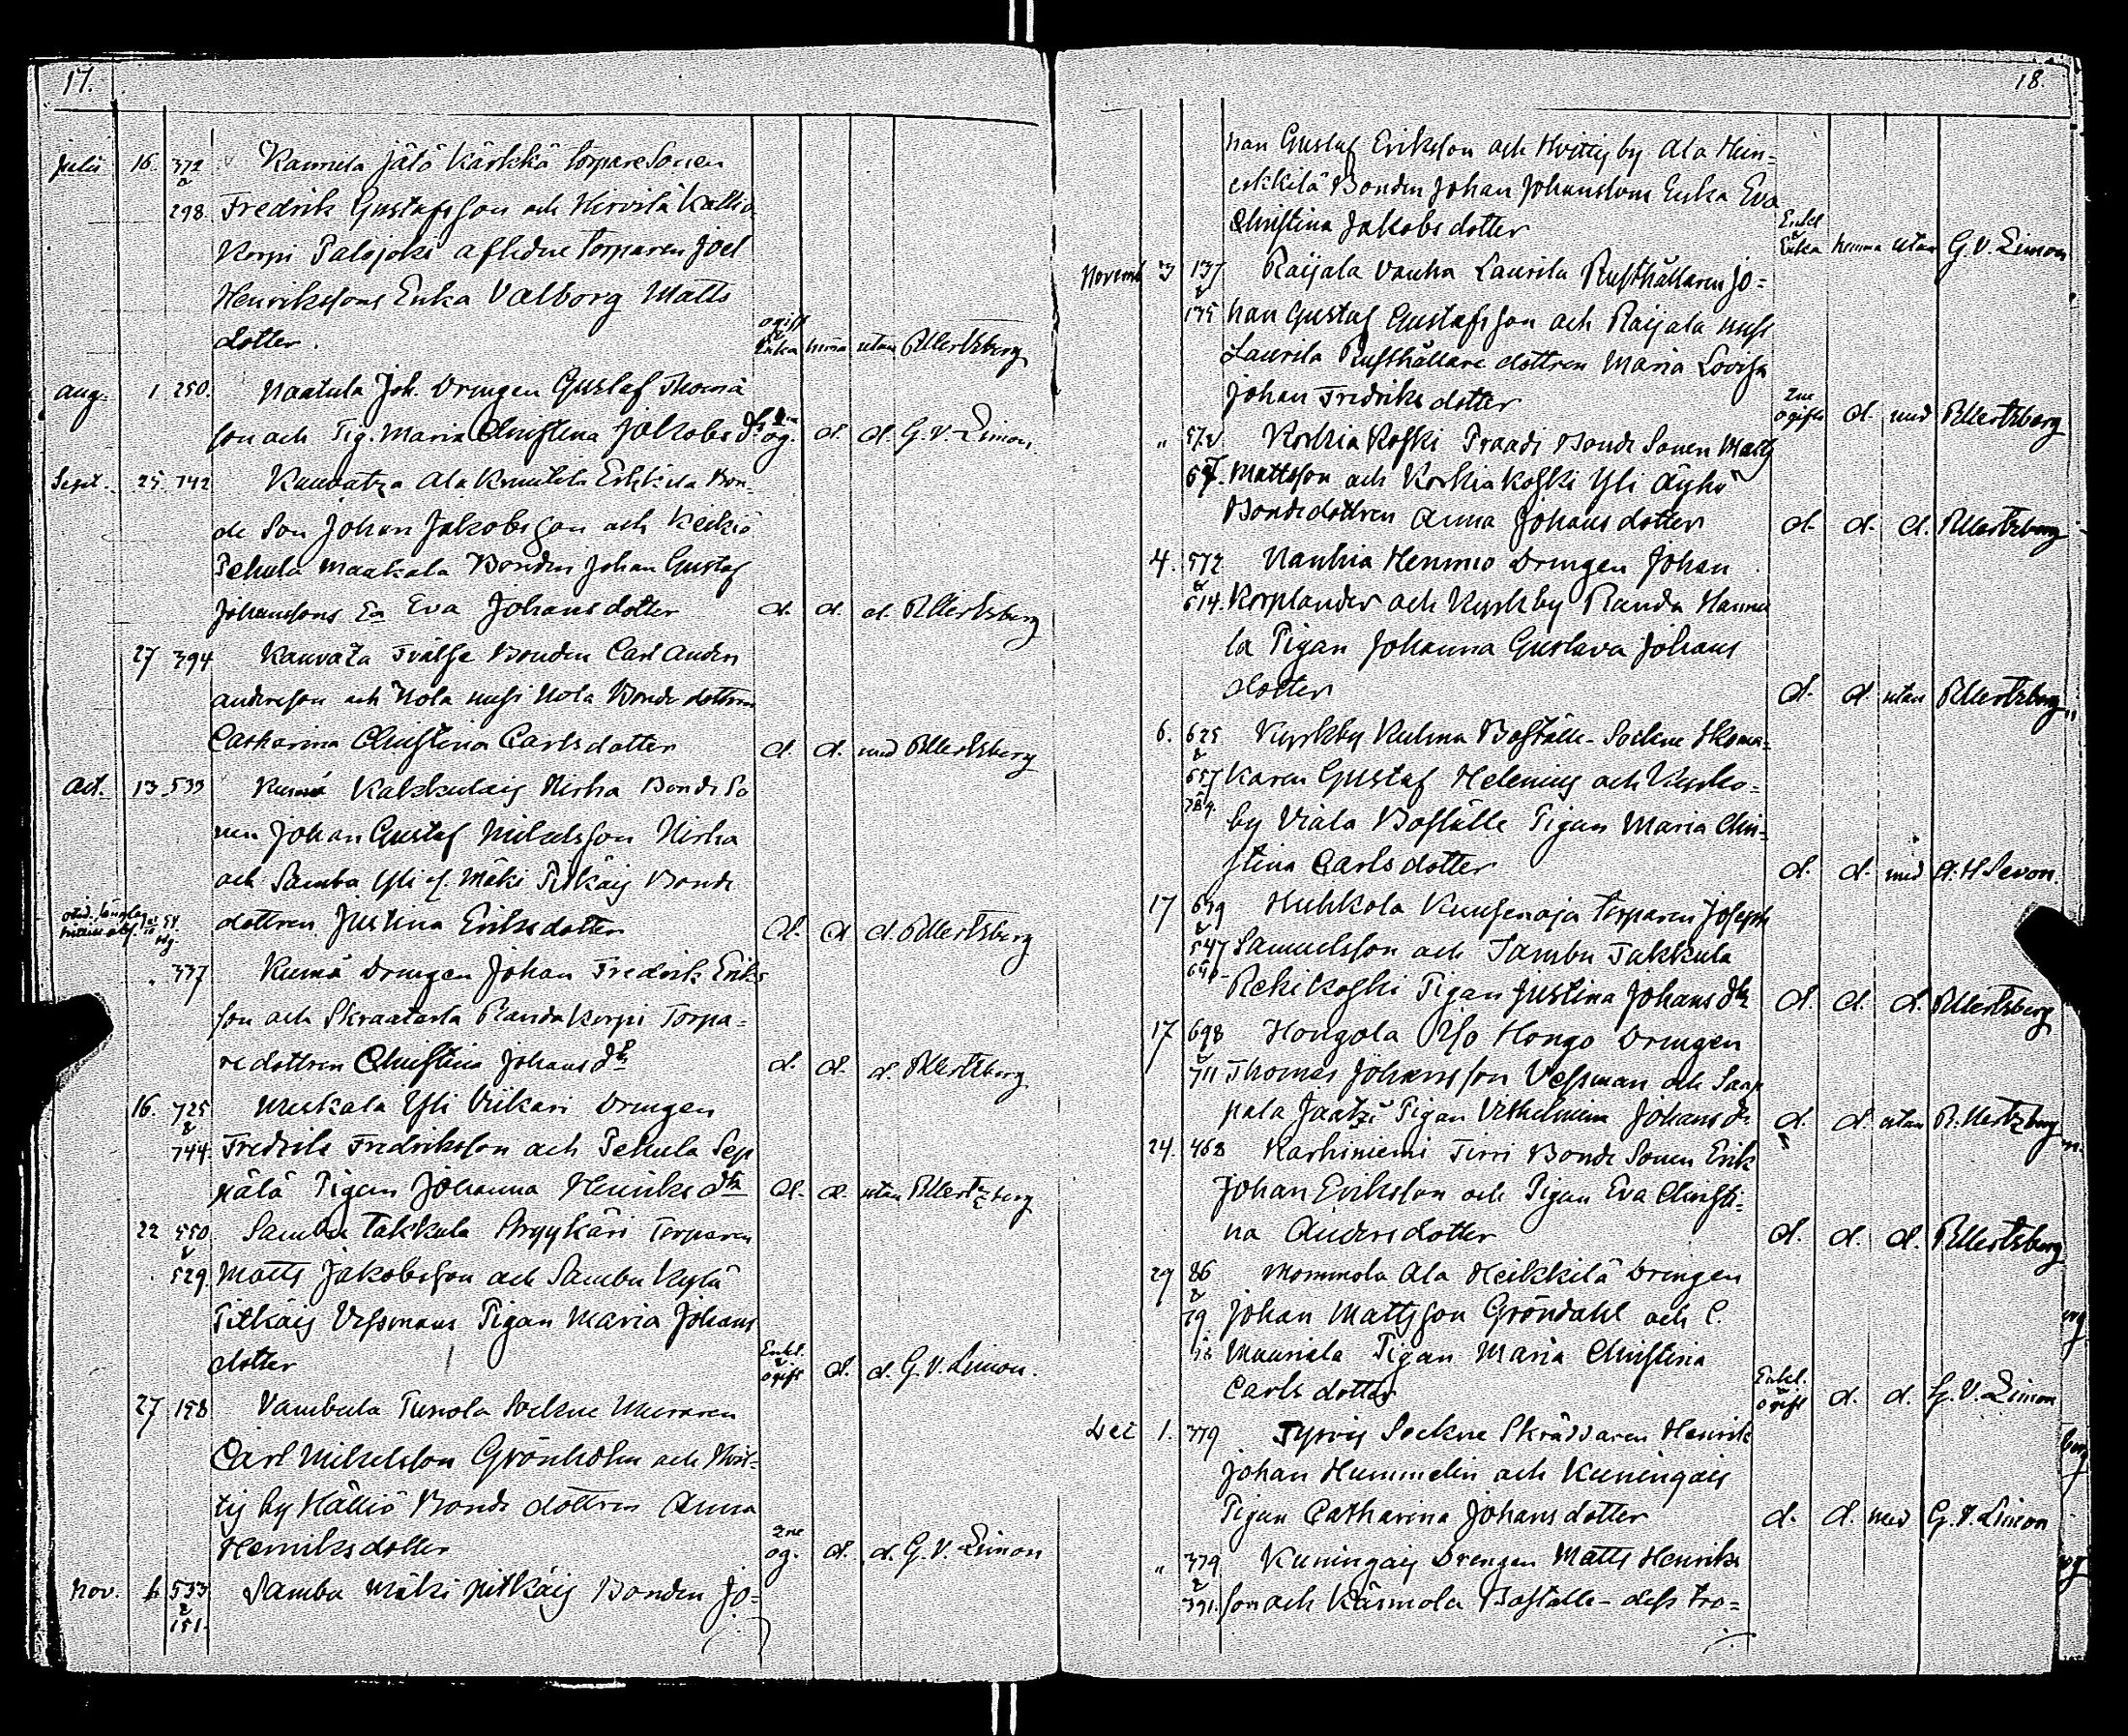 17.
Julii 16. 372 Kannela Jätö Kärkkä torpare Sonen
& 298. Fredrik Gustafsson och Hirvilä Kallio
Korpi Palojoki aflidne torparen Joel
Henrikssons Enka Valborg Matts
dotter. ogift & Enka hema utan R Mertzberg
Aug. 1 250. Naatula Joh. Drengen Gustaf Thomä
son och Pig. Maria Christina Jakobs dr og. d. d. G. V. Limon
Sept. 25 742 Kauvatza Ala Erkkilä Bon-
de Son Johan Jakobsson och Keikiö
Pehula Maakala Bonden Johan Gustaf
Johanssons Ea Eva Johansdotter d. d. d. R Mertzberg
27 394 Kauvatza Bonden Carl Anders
Andersson och Nola Nola Bonde dottren
Catharina Christina Carlsdotter d. d. med R Mertzberg
Oct. 13 533 Kumä Kakkulais Hirha Bonde So
nen Johan Gustaf Mikelsson Hirha
och Samba Yli l. Mäki Pitkäis Bonde
dottren Justina Eriksdotter d. d. d. R Mertzberg
" 337 Kumä Drengen Johan Fredrik Eriks
son och Skraatarla Randakorpi Torpa-
re dottren Christina Johans dtr d. d. d. R Mertzberg
16. 725 Meskala Yli Viikari Drengen
& 744 Fredrik Fredriksson och Pehula Sep
pälä Pigan Johanna Henriks dtr d. d. utan R Mertzberg
22 550 Sambu Takkula Torparen
& 529. Matts Jakobsson och Sambu Kylä
Pitkäis Vessmans Pigan Maria Johans
dotter Enkl. & ogift d. d. G. V. Limon.
27 158 Vambula Tunola Sockne Muraren
Carl Mikelsson Grönholm och Hvit-
tis by Källiö Bonde dottren Anna
Henriksdotter 2ne og. d. d. G. V. Limon
Nov. 6 533 Samba Mäki pitkäis Bonden Jo-
& 151.
18.
han Gustaf Eriksson och Hvittis by Ala Hein-
eskkilä Bonden Johan Johanssons Enka Eva
Christina Jakobsdotter Enkl & Enka hemma utan G. V. Limon
Novemb 3 137 Raijala Vanha Laurila Rusthållaren Jo-
& 135 han Gustaf Gustafsson och Raijala
Laurila Rusthållare dottren Maria Lovisa
Johan Fredriksdotter 2ne ogifte d. med R Mertzberg
" 572 Korkiakoski Praadi Bonde Sonen Matts
Mattsson och Korkiakoski Yli Äyhö
Bondedottren Anna Johansdotter d. d. d. R Mertzberg
4. 572 Nanhia Hemmo Drengen Johan
& 614. Korplander och Kyrkby Randa Hannu
la Pigan Johanna Gustava Johans
dotter d. d. utan R Mertzberg
6. 625 Kyrkby Kulma Boställe Sockne Skoma-
& 657 karen Gustaf Helenius och Kyrko-
by Viala Boställe Pigan Maria Chri-
stina Carlsdotter d. d. med A. H Sevon.
17 639 Huhkola Kuusenoja torparen Joseph
& 547 Samuelsson och Sambu Takkula
Rekikoski Pigan Justina Johans dtr d. d. d. R Mertzberg
17 698 Hongola Iso Hongo Drengen
& 711 Thomas Johansson Vessman och Saap
pala Jaatzi Pigan Vilhelmina Johans dr d. d. utan R. Mertzberg
24. 468 Karhiniemi Tirri Bonde Sonen Erik
Johan Eriksson och Pigan Eva Christi-
na Andersdotter d. d. d. R Mertzberg
29 86 Mommola Ala Heikkilä Drengen
& 79. Johan Mattsson Gröndahl och C.
Mauriala Pigan Maria Christina
Carlsdotter Enkl. & ogift d. d. G. V. Limon
Dec 1. 379 Tyrvis Sockne Skräddaren Henrik
Johan Hummelin och Kuningais
Pigan Catharina Johansdotter d. d. med G. V. Limon
" 379 Kuningais Drengen Matts Henriks
& 391. son och Kärmola Boställe- dess tro-